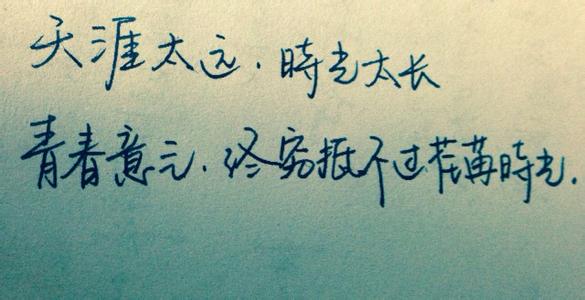 天涯太远.時光太长
青春意元.终穷抵不过荏苒時光.